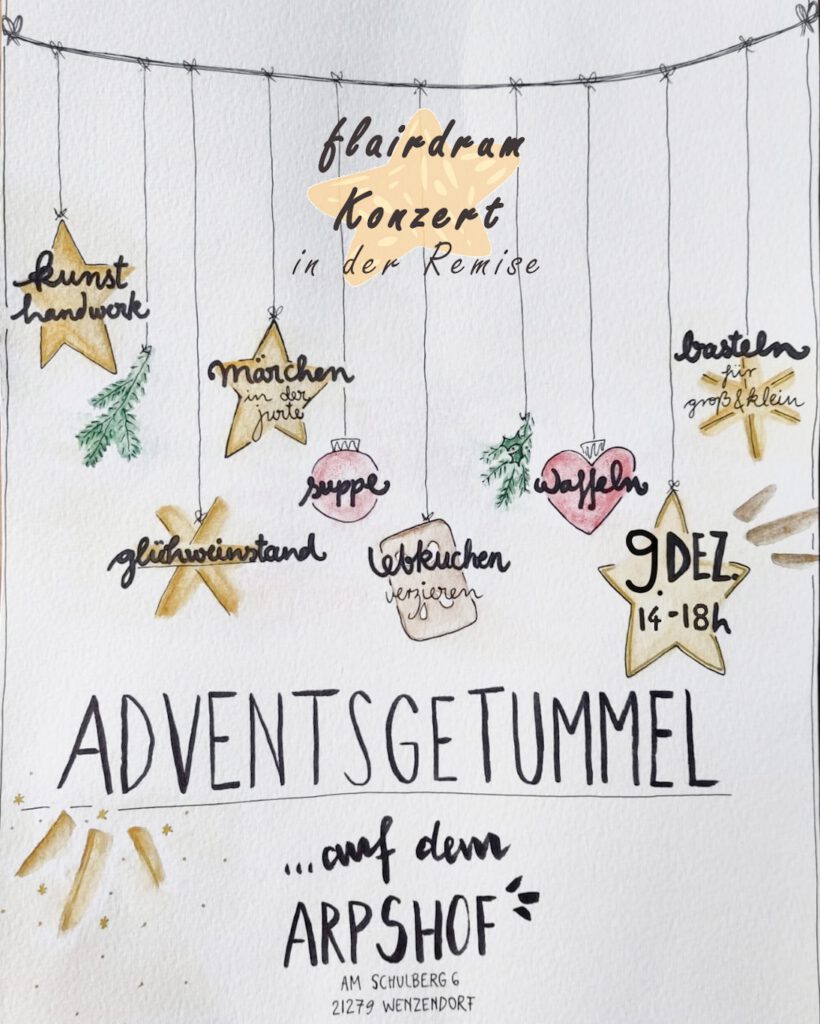 flairdrum
Konzert
in der Remise
kunst
handwerk
märchen
in der
jurte
basteln
für
groß & klein
suppe
waffeln
glühweinstand
lebkuchen
verzieren
9. DEZ.
14-18h
ADVENTSGETUMMEL
...auf dem
ARPSHOF
AM SCHULBERG 6
21279 WENZENDORF